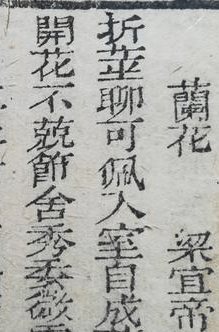 蘭花 梁宣帝
折莖聊可佩入室自成
開花不競節含秀委微